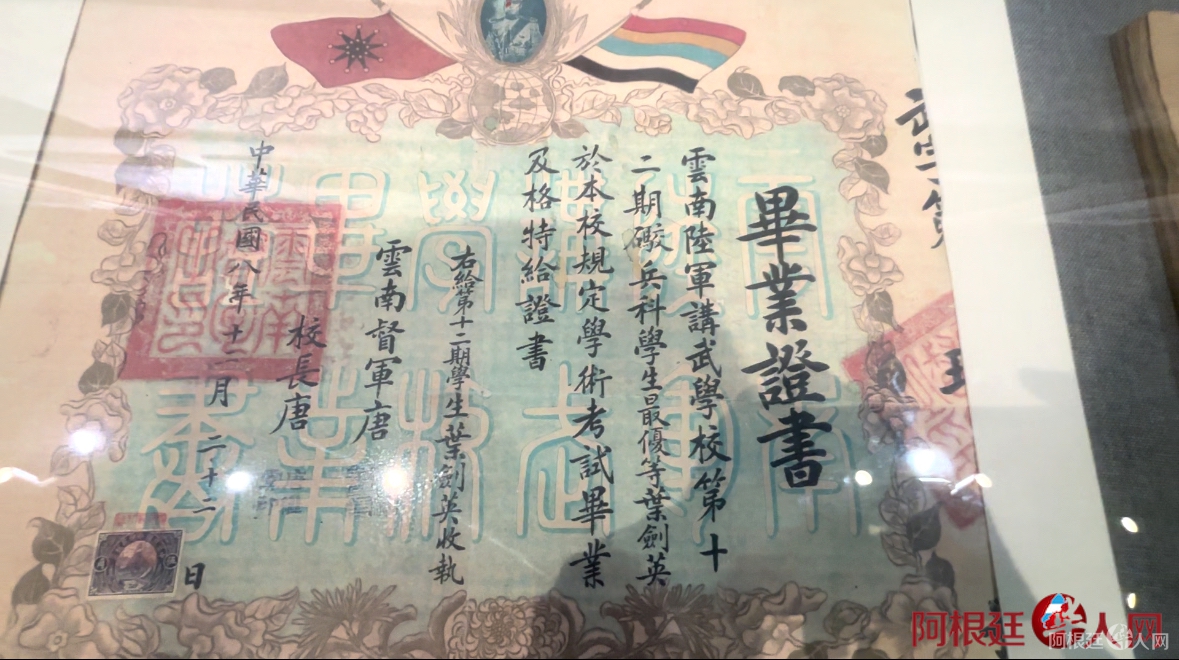 畢業證書
雲南陸軍講武學校第十
二期礮兵科學生最優等葉劍英
於本校規定學術考試畢業
及格特給證書
右給第十二期學生葉劍英收執
雲南督軍唐
校長唐
中華民國八年十二月二十二日
阿根廷華人网
阿根廷华人网